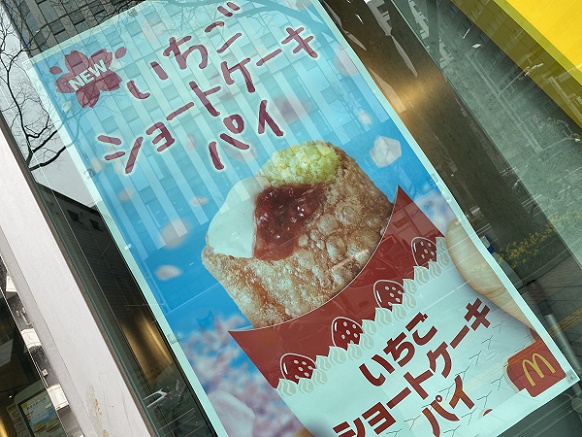 NEW
いちご
ショートケーキ
パイ
いちご
ショートケーキ
パイ